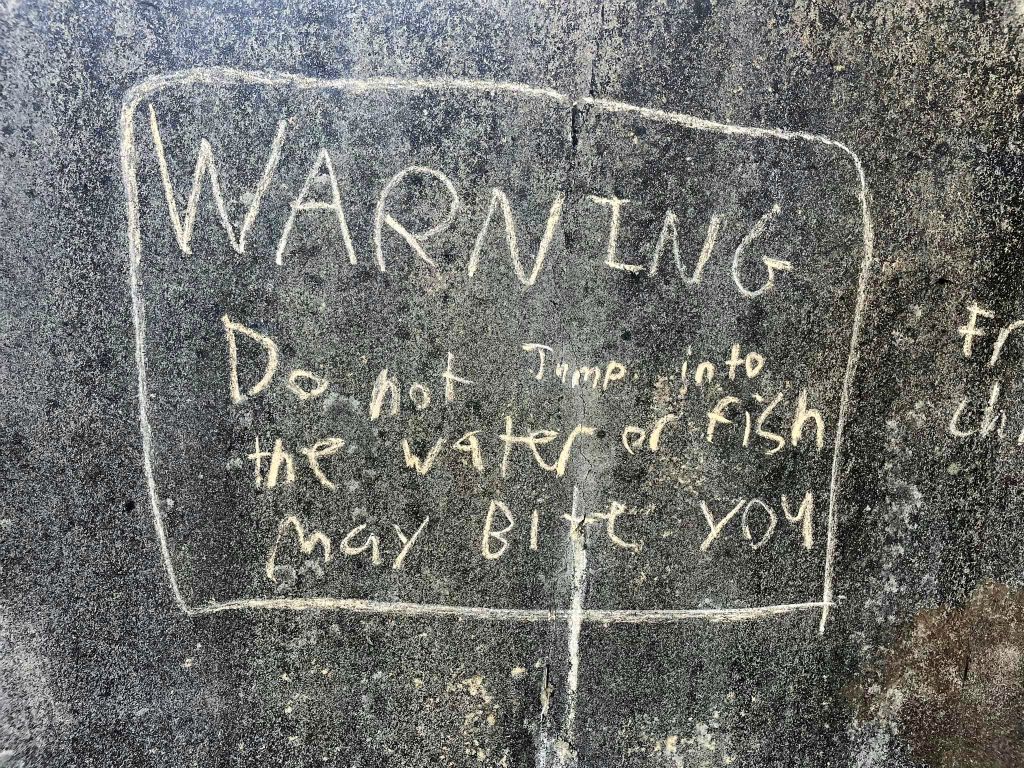 WARNING
Do not Jump into
the water or fish
may BIte YOU
Fr